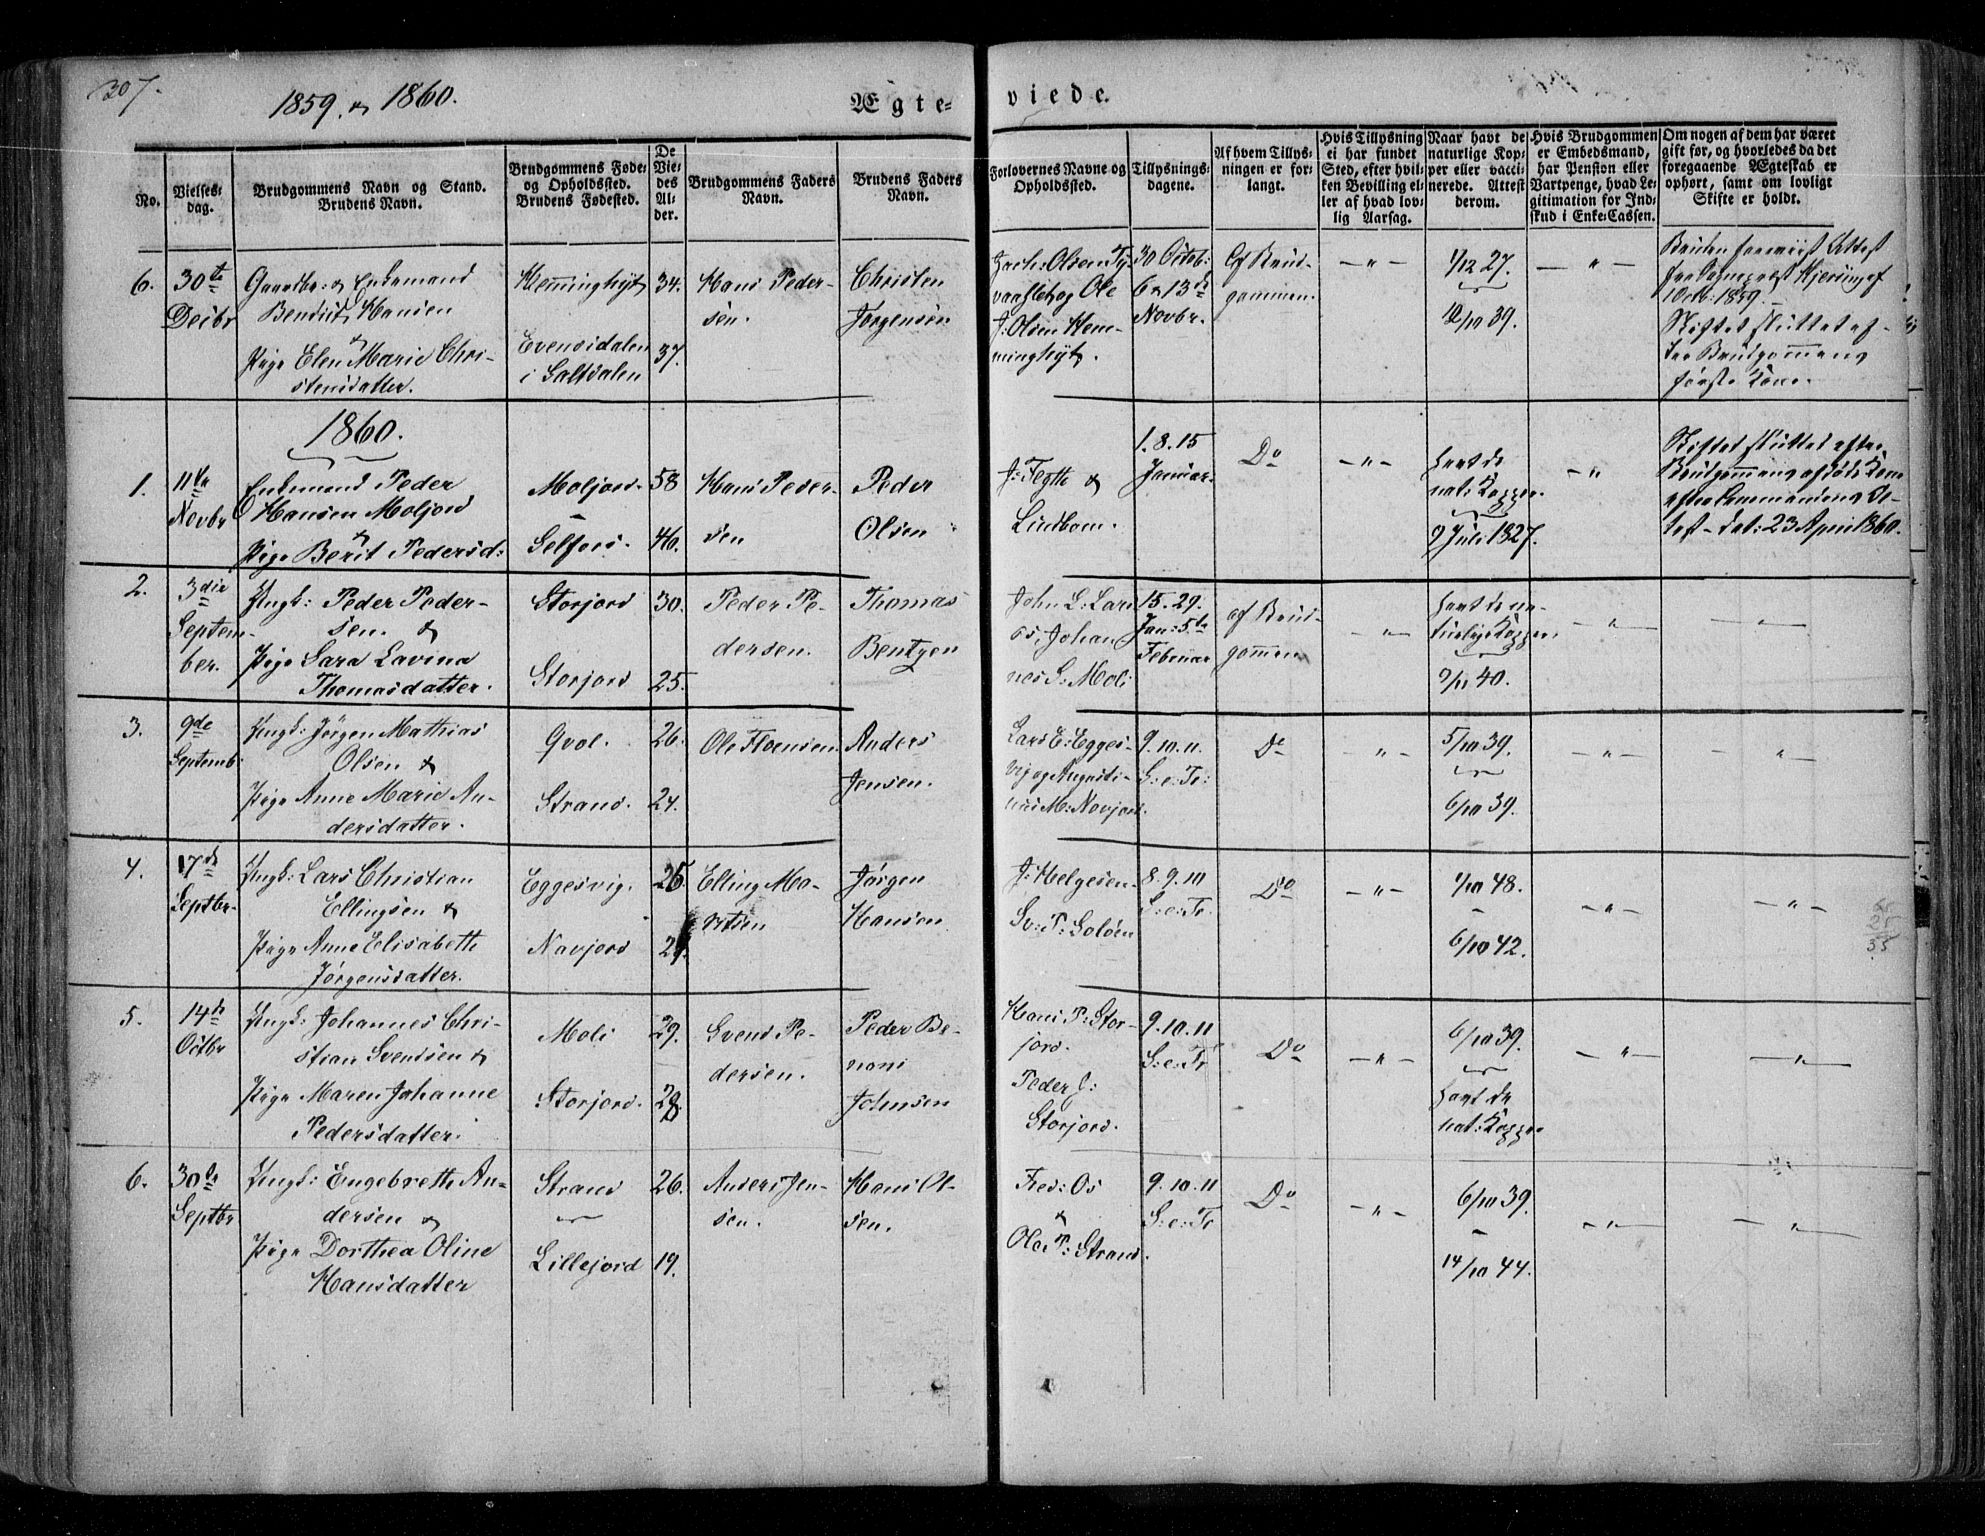 307.
1859. & 1860.
Ægte-
viede.
No.
Vielses-
dag.
Brudgommens Navn og Stand.
Brudens Navn.
Brudgommens Føde-
og Opholdssted.
Brudens Fødested.
De
Vie-
des
Al-
der.
Brudgommens Faders
Navn.
Brudens Faders
Navn.
Forlovernes Navne og
Opholdssted.
Tillysnings-
dagene.
Af hvem Tillys-
ningen er for-
langt.
Hvis Tillysning
ei har fundet
Sted, efter hvil-
ken Bevilling el-
ler af hvad lov-
lig Aarsag.
Naar havt de
naturlige Kop-
per eller vacci-
nerede. Attest
derom.
Hvis Brudgommen
er Embedsmand,
har Pension eller
Vartpenge, hvad Le-
gitimation for Ind-
skud i Enke-Cassen.
Om nogen af dem har været
gift før, og hvorledes da det
foregaaende Ægteskab er
ophørt, samt om lovligt
Skifte er holdt.
6.
30te
Decbr
Gaardbr: & Enkemand
Bendict Hansen
&
Pige Elen Marie Chri-
stensdatter.
Hemminghyt
Evensdalen
i Saltdalen
34.
37.
Hans Peder-
sen.
Christen
Jørgensen
Zach: Olsen
og Ole
J: Olsen Hem-
minghyt.
30 Octob:
6 & 13de
Novbr.
Af Brud-
gommen.
— " —
1/12 27.
12/10 39.
— " —
Bruden Attest
fra
1 Octb: 1859.
Skiftet sluttet ef-
ter Brudgommens
første Kone.
1860.
1.
11te
Novbr
Enkemand Peder
Hansen Moljord
&
Pige Berit Pedersd:
Moljord
Selfors.
58
46.
Hans Peder-
sen
Peder
Olsen
J: Fegth &
Lindbom.
1. 8. 15
Januar.
Do
— " —
havt de
nat: Kopper.
9 Juli 1827.
— "
Skiftet sluttet efter
Brudgommens afdøde Kone
efter Lensmandens At-
test dat: 23 April 1860.
2.
3die
Septem-
ber.
Ungk: Peder Peder-
sen &
Pige Sara Lavina
Thomasdatter.
Storjord
Storjord
30.
25.
Peder Pe-
dersen.
Thomas
Bentzen
John L: Lars
os, Johan
nes S: Moli
15. 29.
Jan: 5te
Februar
af Brud-
gommen
— " —
havt de na-
turlige Kopper.
9/11 40.
— " —
— " —
3.
9de
Septemb:
Ungk: Jørgen Mathias
Olsen &
Pige Anne Marie An-
dersdatter.
Qvol.
Strand.
26.
24.
Ole Floensen
Anders
Jensen.
Lars E: Egges-
vig og Augusti-
nus M: Navjord.
9. 10. 11.
S: e: Tr:
Do
"
5/10 39.
6/10 39.
— " —
"
4.
17de
Septbr.
Ungk: Lars Christian
Ellingsen &
Pige Anne Elisabeth
Jørgensdatter.
Eggesvig.
Navjord
26.
Elling Mo-
ritsen
Jørgen
Hansen
J: Helgesen
Sv: P: Soløen
8. 9. 10
S: e: Tr.
Do
— " —
1/10 48.
—
6/10 42.
— " —
— " —
25
35
5.
14de
Octbr
Ungk: Johannes Chri-
stian Svendsen &
Pige Maren Johanne
Pedersdatter.
Moli
Storjord.
29.
28.
Svend Pe-
dersen.
Peder Be-
noni
Johnsen
Hans P: Stor-
jord.
Peder J:
Storjord.
9. 10. 11
S: e: Tr
Do
— " —
6/10 39.
havt de
nat: Kopper
— " —
— " —
6.
30te
Septbr
Ungk: Engebreth An-
dersen &
Pige Dorthea Oline
Hansdatter
Strand
Lillejord
26.
19.
Anders Jen-
sen.
Hans Ol-
sen.
Fred: Os
&
Ole P: Strand.
9. 10. 11
S: e: Tr
Do
— " —
6/10 39.
—
14/10 44.
— " —
— " —